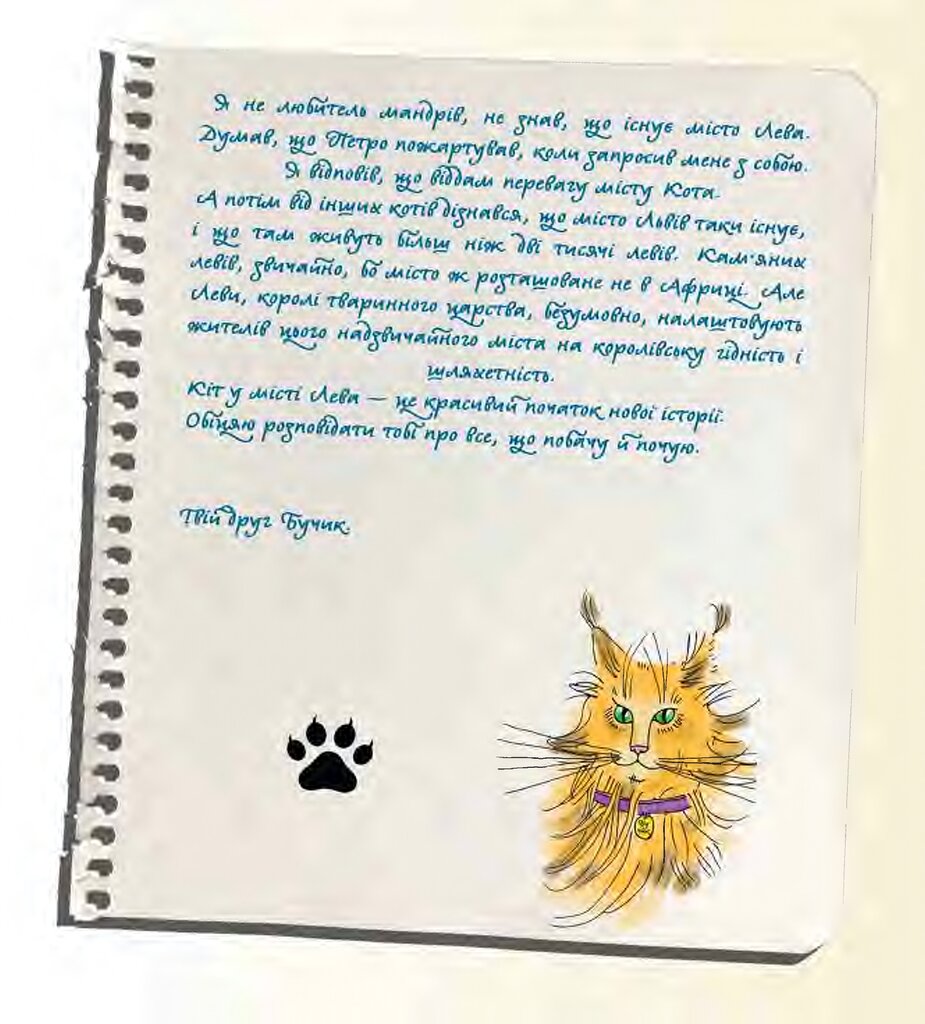 Я не любитель мандрів, не знав, що існує місто Лева.
Думав, що Петро пожартував, коли запросив мене з собою.
Я відповів, що віддам перевагу місту Кота.
А потім від інших котів дізнався, що місто Львів таки існує,
і що там живуть більш ніж дві тисячі левів. Кам'яних
левів, звичайно, бо місто ж розташоване не в Африці. Але
Леви, королі тваринного царства, безумовно, налаштовують
жителів цього надзвичайного міста на королівську гідність і
шляхетність.
Кіт у місті Лева — це красивий початок нової історії.
Обіцяю розповідати тобі про все, що побачу й почую.
Твій друг Бучик.